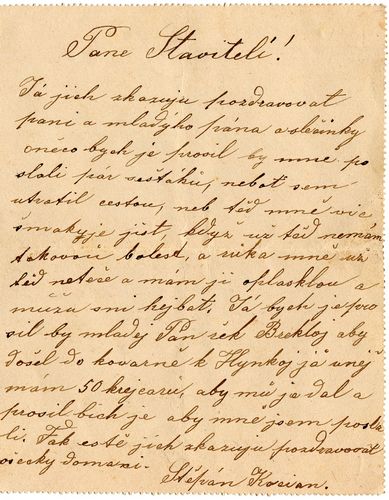 Pane Staviteli!
Já jich zkazuju pozdravovat
pani a mladýho pána a slečinky
oněco bych je prosil by mně po
slali par šestáků, neboť sem
utratil cestou, neb téď mně víc
šmakuje jist, kdyz už téď nemám
takovou bolest, a ruka mně už
téď neteče a mám ji oplasklou a
můžu sni hejbat. Já bych je pro
sil by mladej Pan řek Brekloj aby
došel do kovarně k Hynkoj já uněj
mám 50 krejcarů, aby mů ja dal a
prosil bich je aby mně jsem posla
li. Tak estě jich zkazuju pozdravovat
všecky domani.
Štěpán Kocian.